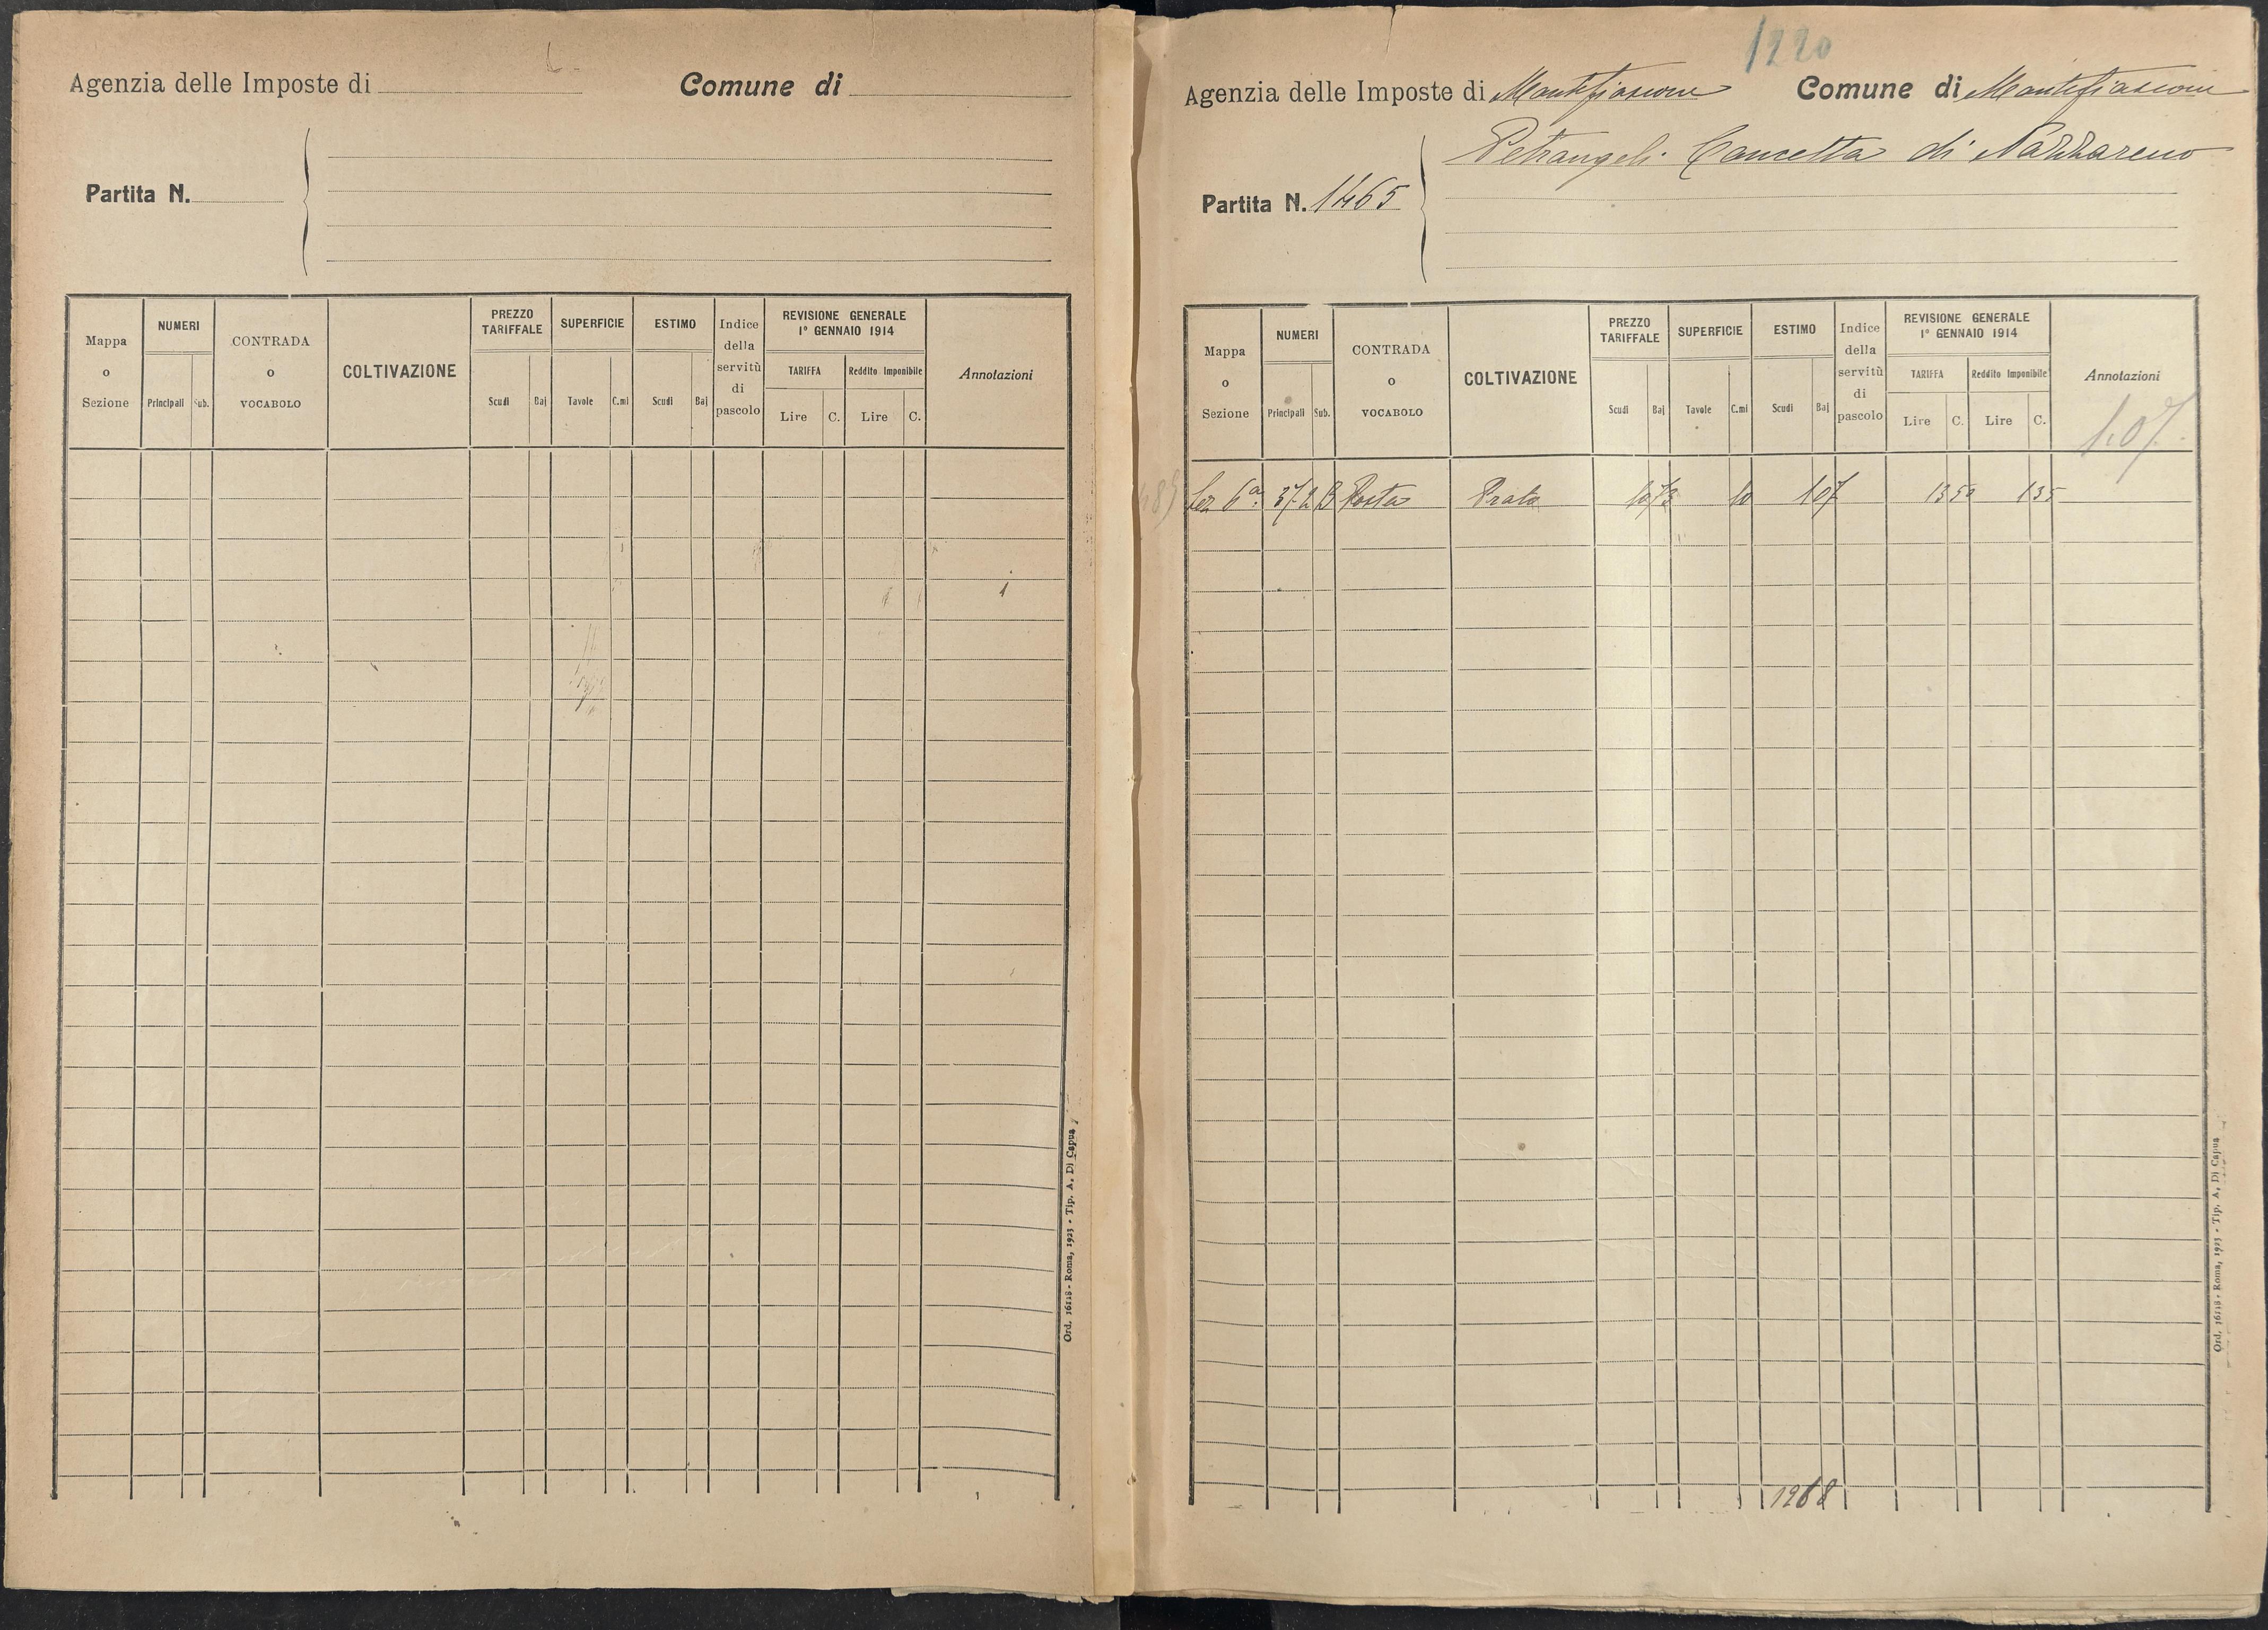 Agenzia delle Imposte di
Comune di
Partita N.
Mappa o Sezione
NUMERI
Principali
Sub.
CONTRADA o VOCABOLO
COLTIVAZIONE
PREZZO TARIFFALE
Scudi
Baj
SUPERFICIE
Tavole
C.mi
ESTIMO
Scudi
Baj
Indice della servitù di pascolo
REVISIONE GENERALE
1° GENNAIO 1914
TARIFFA
Lire
C.
Reddito Imponibile
Lire
C.
Annotazioni
Ord. 16118 - Roma, 1923 - Tip. A. Di Capua
1220
Agenzia delle Imposte di Montefiascone
Comune di Montefiascone
Petrangeli Concetta di Nazzareno
Partita N. 1465
Mappa o Sezione
NUMERI
Principali
Sub.
CONTRADA o VOCABOLO
COLTIVAZIONE
PREZZO TARIFFALE
Scudi
Baj
SUPERFICIE
Tavole
C.mi
ESTIMO
Scudi
Baj
Indice della servitù di pascolo
REVISIONE GENERALE
1° GENNAIO 1914
TARIFFA
Lire
C.
Reddito Imponibile
Lire
C.
Annotazioni
1.07
Sez 6a 372 B Posta Prato 10 73 10 1 07 13 50 1 35
1268
Ord. 16118 - Roma, 1923 - Tip. A. Di Capua